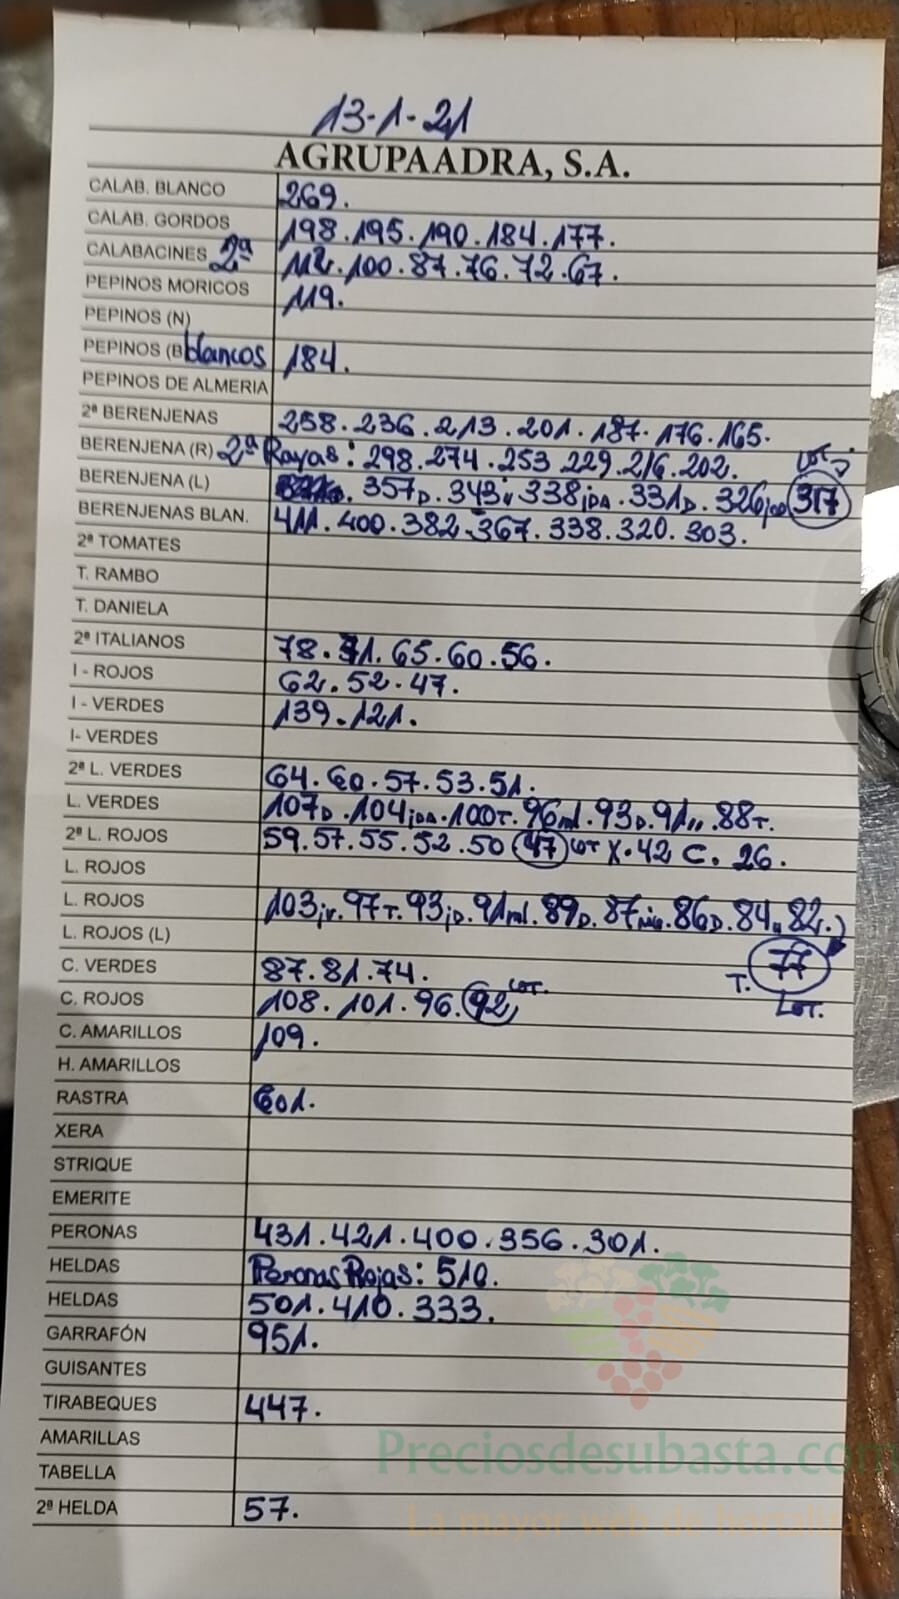 13-1-21
AGRUPAADRA, S.A.
CALAB. BLANCO 269.
CALAB. GORDOS 198.195.190.184.177.
CALABACINES 2ª 112.100.87.76.72.67.
PEPINOS MORICOS 119.
PEPINOS (N)
PEPINOS (B blancos 184.
PEPINOS DE ALMERIA
2ª BERENJENAS 258.236.213.201.187.176.165.
BERENJENA (R) 2ª Rayas: 298.274.253 229.216.202. LOT.
BERENJENA (L) 357D.343.338iDA.331D.326 317
BERENJENAS BLAN. 411.400.382.367.338.320.303.
2ª TOMATES
T. RAMBO
T. DANIELA
2ª ITALIANOS 78.71.65.60.56.
I - ROJOS 62.52.47.
I - VERDES 139.121.
I- VERDES
2ª L. VERDES 64.60.57.53.51.
L. VERDES 107D.104iDA.100T.96ml.93D.91,,.88T.
2ª L. ROJOS 59.57.55.52.50 47 LOT X.42 C. 26.
L. ROJOS
L. ROJOS 103jr.97T.93jD.91ml.89D.87.86D.84.82.
L. ROJOS (L) 77
C. VERDES 87.81.74. T. LOT.
C. ROJOS 108.101.96.92 LOT.
C. AMARILLOS 109.
H. AMARILLOS
RASTRA 601.
XERA
STRIQUE
EMERITE
PERONAS 431.421.400.356.301.
HELDAS Peronas Rojas: 510.
HELDAS 501.410.333.
GARRAFÓN 951.
GUISANTES
TIRABEQUES 447.
AMARILLAS
Preciosdesubasta.com
TABELLA
2ª HELDA 57.
La mayor web de hortalizas